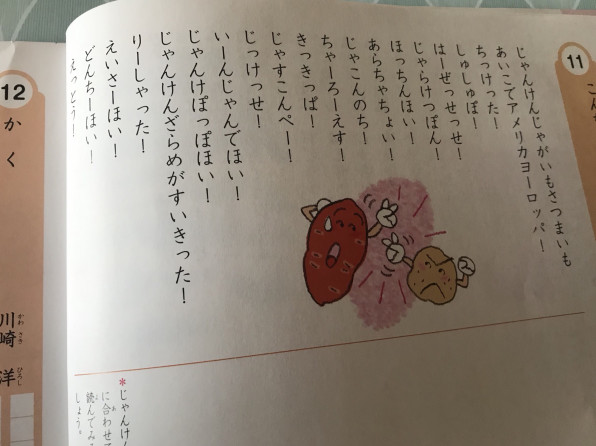 11
じゃんけんじゃがいもさつまいも
あいこでアメリカヨーロッパ！
ちっけった！
しゅしゅぽ！
はーぜっせっせ！
じゃらけつぽん！
ほっちんほい！
あらちゃちょい！
じゃこんのち！
ちゃーろーえす！
きっきっぱ！
じゃすこんぺー！
じっけっせ！
いーんじゃんでほい！
じゃんけぽっぽほい！
じゃんけんざらめがすいきった！
りーしゃった！
えいさーほい！
どんちーほい！
えっとう！
＊じゃんけん
に合わせて
読んでみ
しょう。
12
かく
川崎洋
かわさきひろし